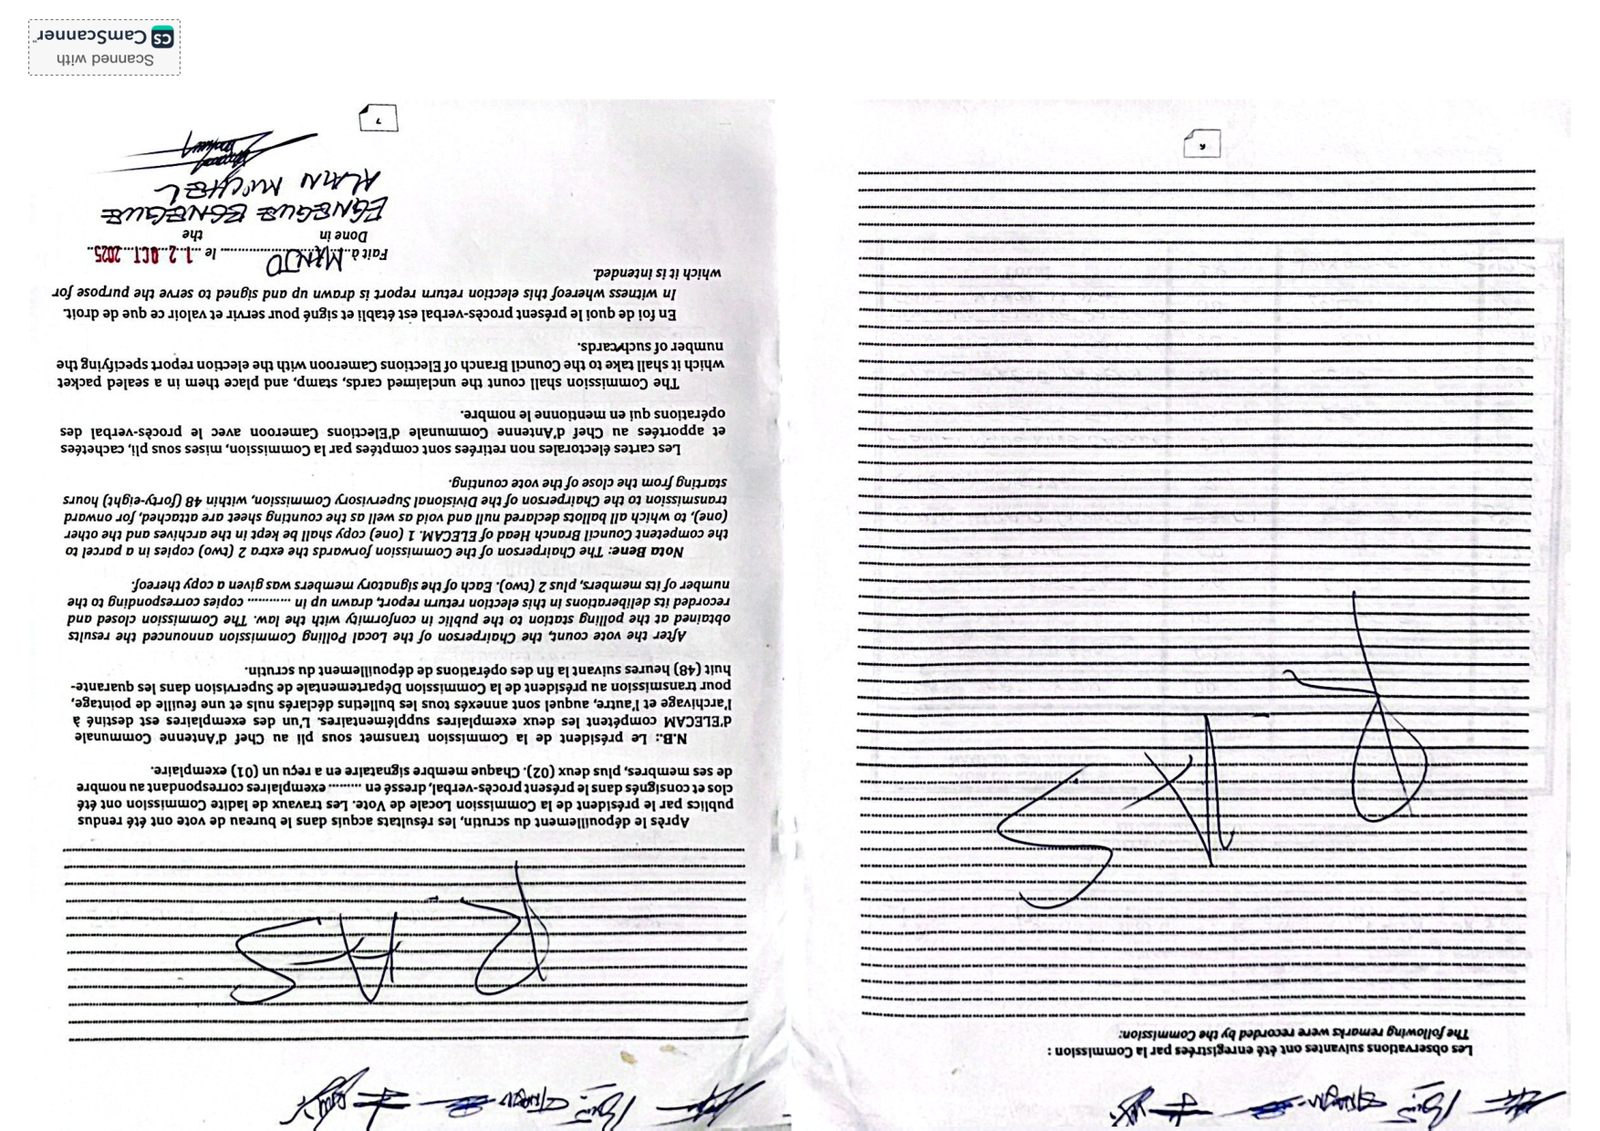 Les observations suivantes ont été enregistrées par la Commission :
The following remarks were recorded by the Commission:
R A S
6
R A S
Après le dépouillement du scrutin, les résultats acquis dans le bureau de vote ont été rendus
publics par le président de la Commission Locale de Vote. Les travaux de ladite Commission ont été
clos et consignés dans le présent procès-verbal, dressé en ......... exemplaires correspondant au nombre
de ses membres, plus deux (02). Chaque membre signataire en a reçu un (01) exemplaire.
N.B.: Le président de la Commission transmet sous pli au Chef d'Antenne Communale
d'ELECAM compétent les deux exemplaires supplémentaires. L'un des exemplaires est destiné à
l'archivage et l'autre, auquel sont annexés tous les bulletins déclarés nuls et une feuille de pointage,
pour transmission au président de la Commission Départementale de Supervision dans les quarante-
huit (48) heures suivant la fin des opérations de dépouillement du scrutin.
After the vote count, the Chairperson of the Local Polling Commission announced the results
obtained at the polling station to the public in conformity with the law. The Commission closed and
recorded its deliberations in this election return report, drawn up in ........... copies corresponding to the
number of its members, plus 2 (two). Each of the signatory members was given a copy thereof.
Nota Bene: The Chairperson of the Commission forwards the extra 2 (two) copies in a parcel to
the competent Council Branch Head of ELECAM. 1 (one) copy shall be kept in the archives and the other
(one), to which all ballots declared null and void as well as the counting sheet are attached, for onward
transmission to the Chairperson of the Divisional Supervisory Commission, within 48 (forty-eight) hours
starting from the close of the vote counting.
Les cartes électorales non retirées sont comptées par la Commission, mises sous pli, cachetées
et apportées au Chef d'Antenne Communale d'Elections Cameroon avec le procès-verbal des
opérations qui en mentionne le nombre.
The Commission shall count the unclaimed cards, stamp, and place them in a sealed packet
which it shall take to the Council Branch of Elections Cameroon with the election report specifying the
number of such cards.
En foi de quoi le présent procès-verbal est établi et signé pour servir et valoir ce que de droit.
In witness whereof this election return report is drawn up and signed to serve the purpose for
which it is intended.
Fait à MANJO le 12 OCT 2025
Done in the
EGNEGUE EGNEGUE
ALAIN MICHEL
7
Scanned with
CS CamScanner